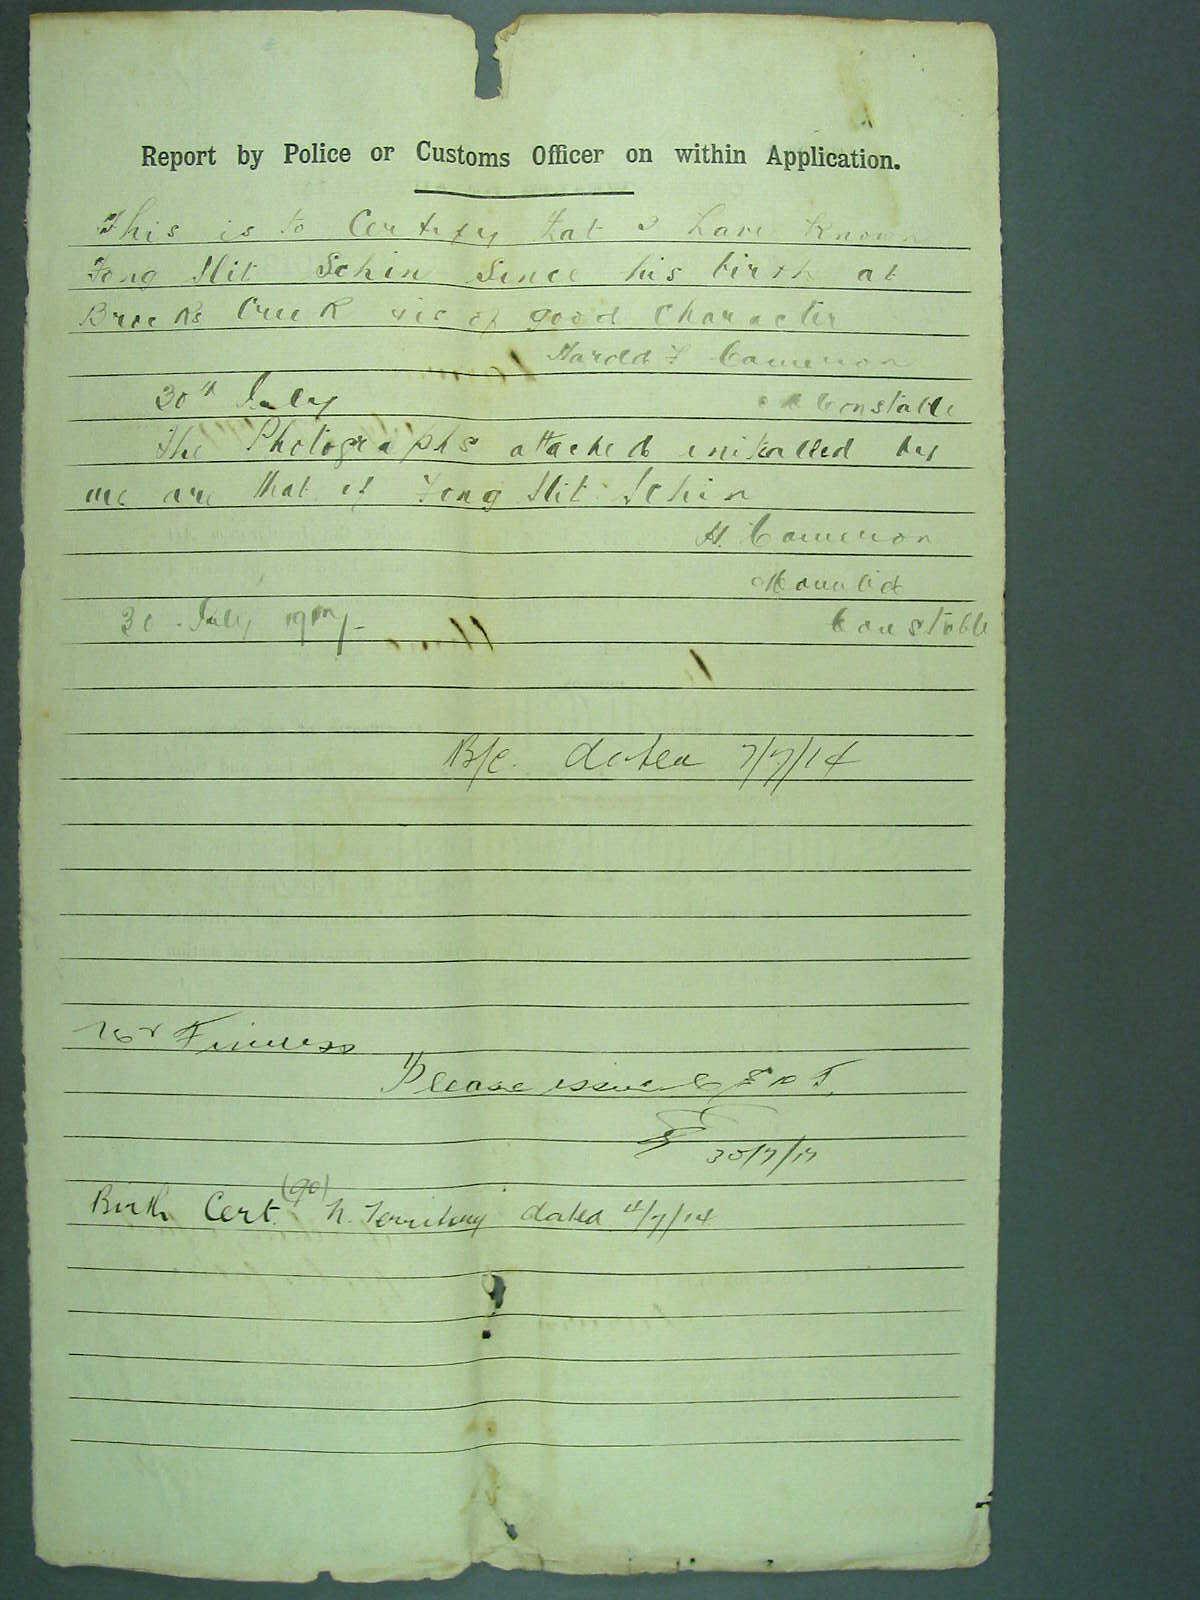 Report by Police or Customs Officer on within Application.
This is to Certify that I have Known
Fong Hit Schin Since his birth at
Brocks Creek of good Character
Harold F Cameron
30th July
Constable
The Photographs attached initialled by
me are that of Fong Hit Schin
H. Cameron
Mounted
30 July
Constable
B/C. dated 7/7/14
Mr Finniss
Please issue
30/7/17
Birth Cert. (90) N. Territory dated /7/14